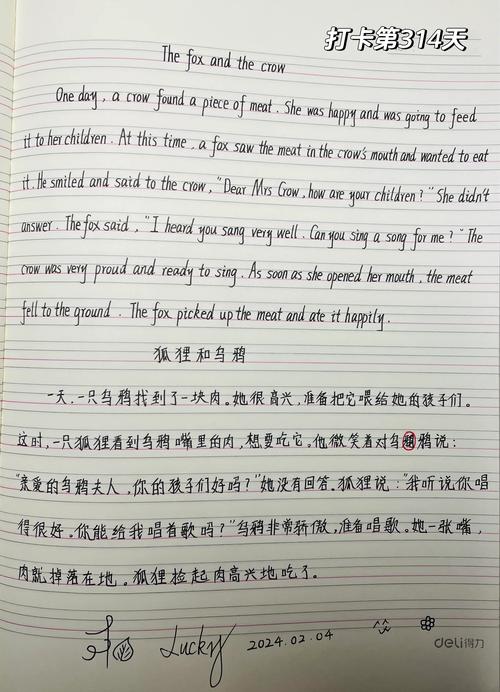 打卡第314天
The fox and the crow
One day, a crow found a piece of meat. She was happy and was going to feed
it to her children. At this time, a fox saw the meat in the crow's mouth and wanted to eat
it. He smiled and said to the crow, "Dear Mrs Crow, how are your children?" She didn't
answer. The fox said, "I heard you sang very well. Can you sing a song for me?" The
crow was very proud and ready to sing. As soon as she opened her mouth, the meat
fell to the ground. The fox picked up the meat and ate it happily.
狐狸和乌鸦
一天,一只乌鸦找到了一块肉。她很高兴,准备把它喂给她的孩子们。
这时,一只狐狸看到乌鸦嘴里的肉,想要吃它。他微笑着对乌鸦说:
"亲爱的乌鸦夫人,你的孩子们好吗?"她没有回答。狐狸说:"我听说你唱
得很好。你能给我唱首歌吗?"乌鸦非常骄傲,准备唱歌。她一张嘴,
肉就掉落在地。狐狸捡起肉高兴地吃了。
Lucky 2024.02.04
deli得力